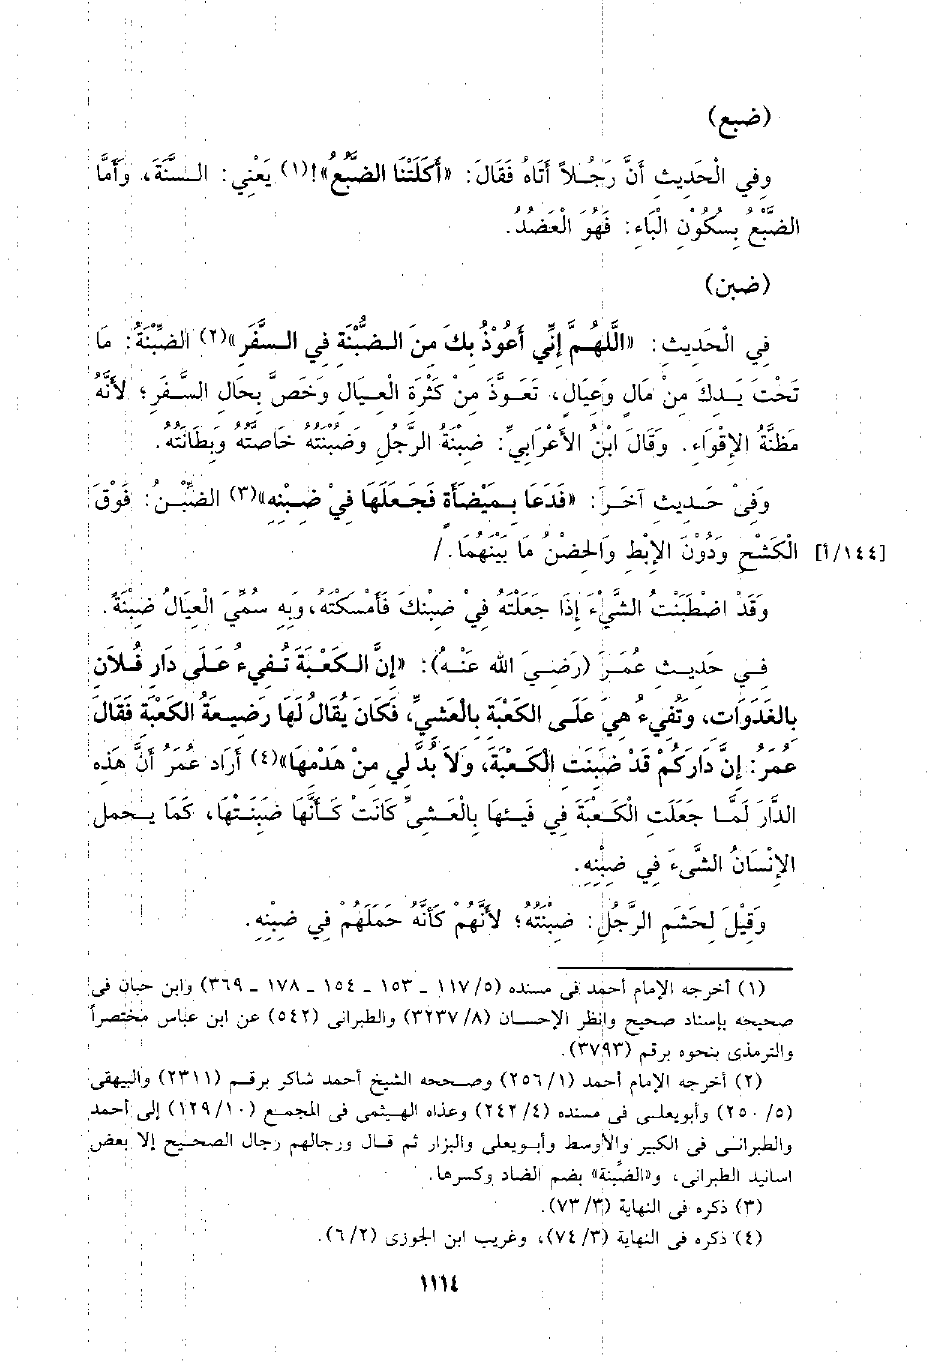 (ضبع)
وفي الْحَدِيثِ أنَّ رَجُلاً أتَاهُ فَقَالَ: «أَكَلَتْنَا الضَّبُعُ»!(١) يَعْنِي: السَّنَةَ، وَأَمَّا
الضَّبْعُ بِسكُوْنِ الْبَاءِ: فَهُوَ الْعَضُدُ.
(ضبن)
فِي الْحَدِيثِ: «اللَّهُمَّ إنِّي أعُوْذُ بِكَ مَنَ الضُّبْنَةِ فِي السَّفَرِ»(٢) الضِّبْنَةُ: مَا
تَحْتَ يَدِكَ مِنْ مَالٍ وَعِيَالٍ، تَعَوَّذَ مِنْ كَثْرَةِ الْعِيَالِ وَخَصَّ بِحَالِ السَّفَرِ؛ لأنَّهُ
مَظَنَّةُ الإقْوَاءِ. وَقَالَ ابْنُ الأعْرَابِيِّ: ضِبْنَةُ الرَّجُلِ وَضَبِنَتُهُ خَاصَّتُهُ وَبِطَانَتُهُ.
وَفِىْ حَدِيثٍ آخَرَ: «فَدَعَا بِمِيْضَأَةٍ فَجَعَلَهَا فِيْ ضِبْنِهِ»(٣) الضِّبْنُ: فَوْقَ
الْكَشْحِ وَدُوْنَ الإِبْطِ وَالحِضْنُ مَا بَيْنَهُمَا./ [١٤٤/أ]
وَقَدْ اضْطَبَنْتُ الشَّيْءَ إذَا جَعَلْتَهُ فِيْ ضِبْنِكَ فَأمْسَكْتَهُ، وَبِهِ سُمِّيَ الْعِيَالُ ضِبْنَةً.
فِي حَدِيثِ عُمَرَ (رَضِيَ الله عَنْهُ): «إنَّ الكَعْبَةَ تُفِيءُ عَلَى دَارِ فُلاَنٍ
بِالغَدَوَاتِ، وَتُفِيءُ هِيَ عَلَى الكَعْبَةِ بِالْعَشِيِّ، فَكَانَ يُقَالُ لَهَا رَضِيعَةُ الكَعْبَةِ فَقَالَ
عُمَرُ: إنَّ دَارَكُمْ قَدْ ضَبَنَتِ الكَعْبَةَ، وَلاَ بُدَّ لِي مِنْ هَدْمِهَا»(٤) أرَادَ عُمَرُ أنَّ هَذِهِ
الدَّارَ لَمَّا جَعَلَتِ الْكَعْبَةَ فِي فَيْئِهَا بِالْعَشِيِّ كَانَتْ كَأنَّهَا ضَبَنَتْهَا، كَمَا يَحْمِلُ
الإِنْسَانُ الشَّىْءَ فِي ضِبْنِهِ.
وَقِيْلَ لِحَشَمِ الرَّجُلِ: ضِبْنَتُهُ؛ لأنَّهُمْ كَأنَّهُ حَمَلَهُمْ فِي ضِبْنِهِ.
(١) أخرجه الإمام أحمد فى مسنده (٥/ ١١٧ ـ ١٥٣ ـ ١٥٤ ـ ١٧٨ ـ ٣٦٩) وابن حبان فى
صحيحه بإسناد صحيح وانظر الإحسان (٨/ ٣٢٣٧) والطبرانى (٥٤٢) عن ابن عباس مختصراً
والترمذى بنحوه برقم (٣٧٩٣).
(٢) أخرجه الإمام أحمد (١/ ٢٥٦) وصححه الشيخ أحمد شاكر برقم (٢٣١١) والبيهقى
(٥/ ٢٥٠) وأبويعلى فى مسنده (٤/ ٢٤٢) وعذاه الهيثمى فى المجمع (١٠/ ١٢٩) إلى أحمد
والطبرانى فى الكبير والأوسط وأبويعلى والبزار ثم قال ورجالهم رجال الصحيح إلا بعض
اسانيد الطبرانى، و«الضبنة» بضم الضاد وكسرها.
(٣) ذكره فى النهاية (٣/ ٧٣).
(٤) ذكره فى النهاية (٣/ ٧٤)، وغريب ابن الجوزى (٢/ ٦).
١١١٤